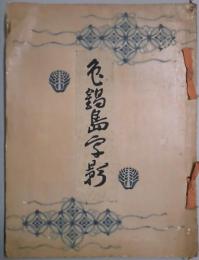 色鍋島字影